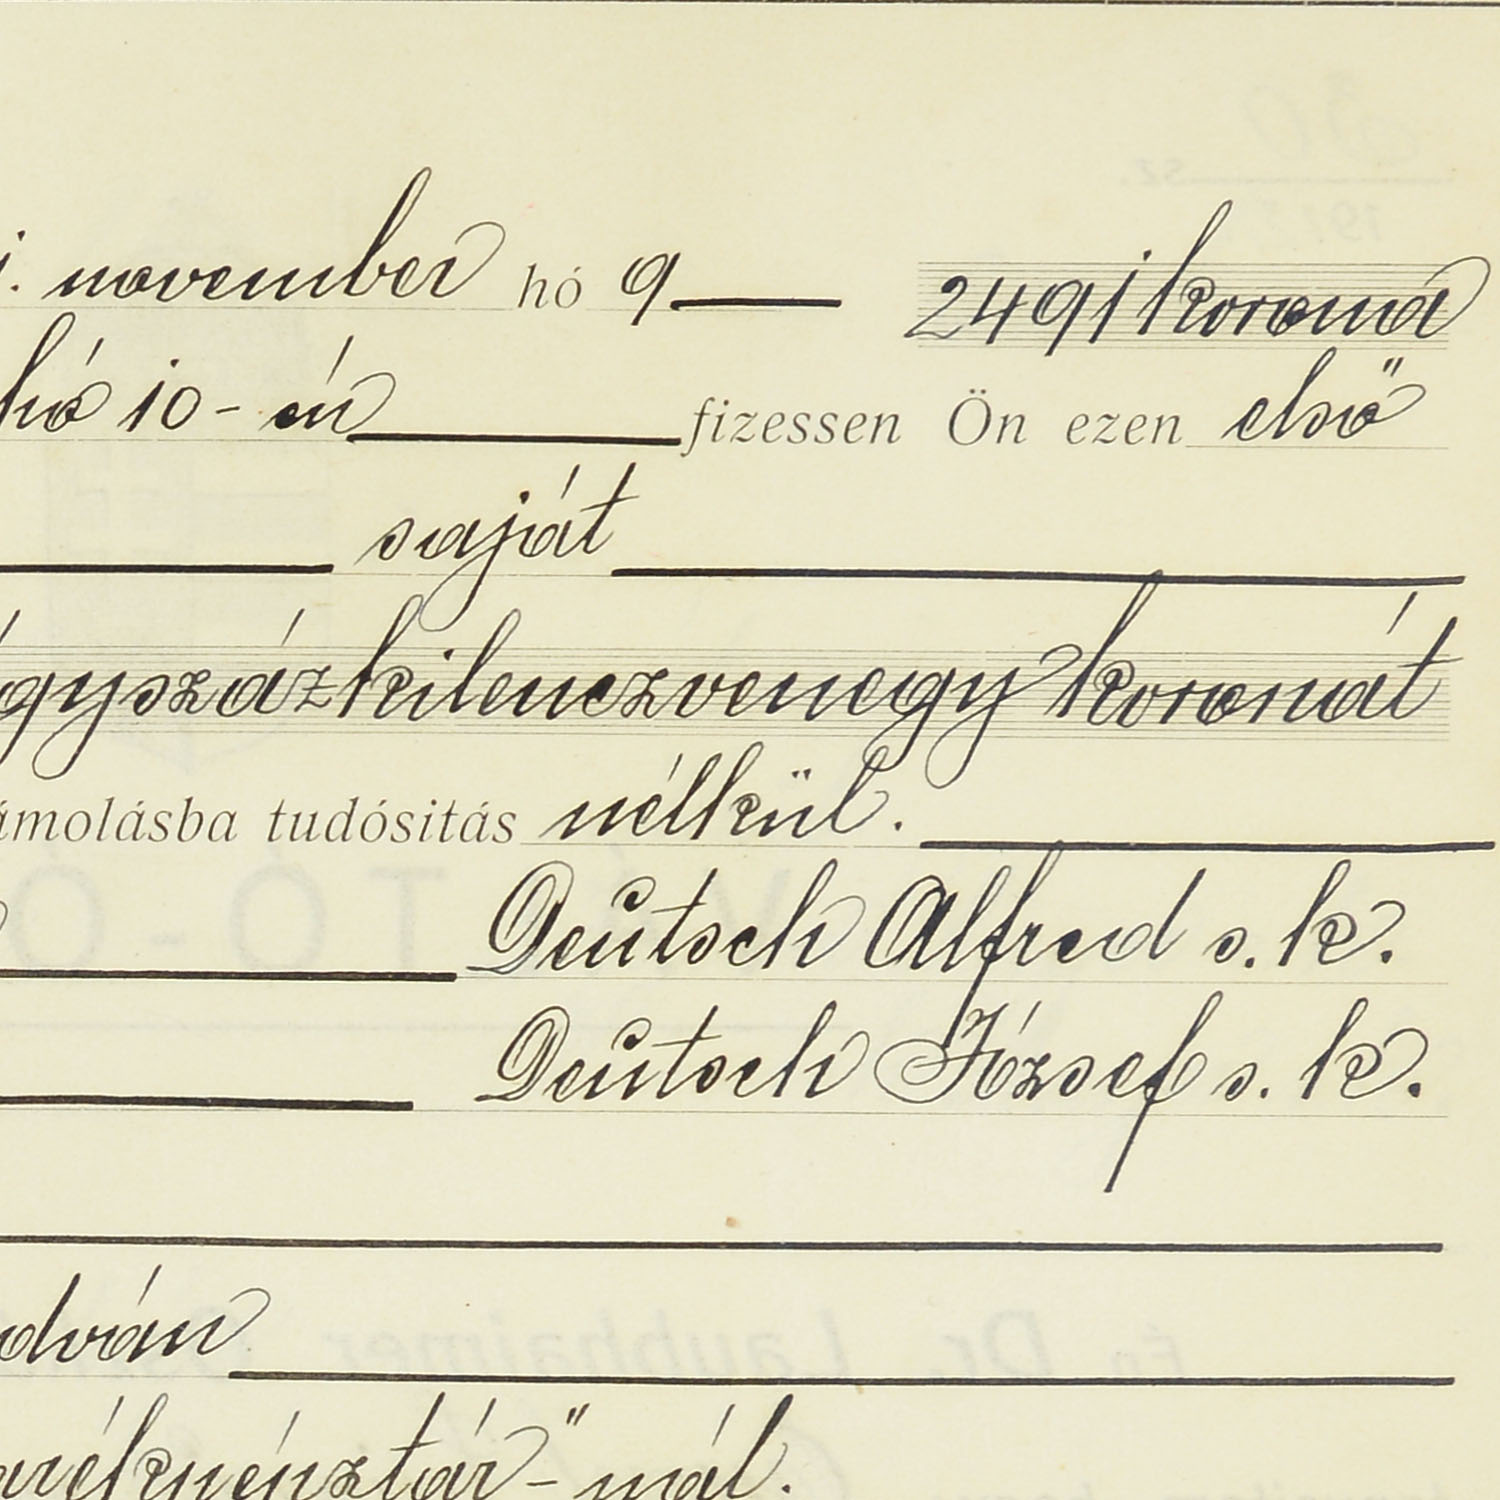 i. november hó 9 2491 korona
hó 10-én fizessen Ön ezen első
saját
égyszázkilenczvenegy koronát
ámolásba tudósitás nélkül.
Deutsch Alfred s. k.
Deutsch József s. k.
dván
arékpénztár"-nál.